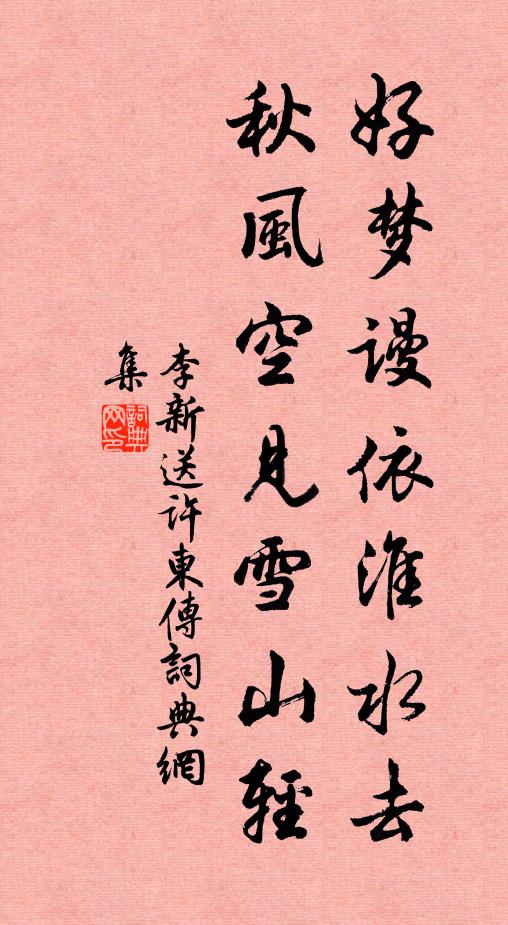 好梦谩依淮水去
秋風空見雪山輕
李新送许東傳詞典網
集
詞典網印